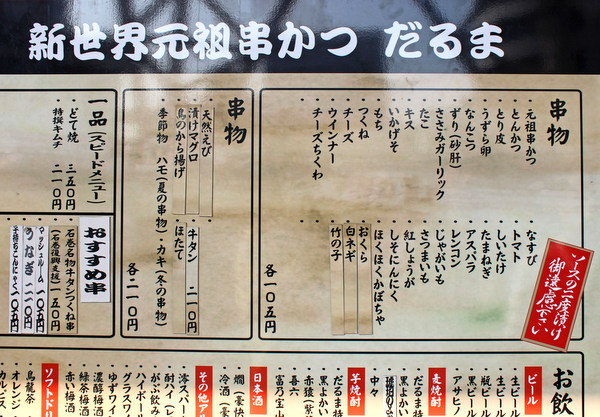 新世界元祖串かつ だるま
串物
・元祖串かつ
・とんかつ
・とり皮
・うずら卵
・なんこつ
・ずり(砂肝)
・ささみガーリック
・たこ
・キス
・いかげそ
・もち
・つくね
・チーズ
・ウインナー
・チーズちくわ
・なすび
・トマト
・しいたけ
・たまねぎ
・アスパラ
・レンコン
・じゃがいも
・さつまいも
・紅しょうが
・しそにんにく
・ほくほくかぼちゃ
・おくら
・白ネギ
・竹の子
各一〇五円
ソースの二度漬け
御遠慮下さい
串物
・天然えび
・漬けマグロ
・鳥のから揚げ
・季節物 ハモ(夏の串物)・カキ(冬の串物)
・牛タン
・ほたて
二一〇円
各二一〇円
一品(スピードメニュー)
・どて焼 三五〇円
・特撰キムチ 二一〇円
おすすめ串
・石巻名物牛タンつくね串
(石巻復興支援) 一五〇円
・マッシュルーム 一〇五円
・うなぎ 二一〇円
・子持ちこんにゃく 一〇五円
お飲
ビール
・生ビー
・生ビー
・瓶ビー
・黒ビー
・アサヒ
麦焼酎
・だるま特
・黒よかい
・中々
芋焼酎
・だるま特
・黒よかい
・赤猿(紫
・喜六
・富乃宝山
日本酒
・燗(豪快
・冷酒(
その他ア
・酎ハイ(レ
・がぶ飲み
・ハイボー
・グラスワ
・ゆずワイ
・濃醇梅酒
・緑茶梅酒
・赤い梅酒
ソフトドリ
・烏龍茶
・オレンジ
・カルピス